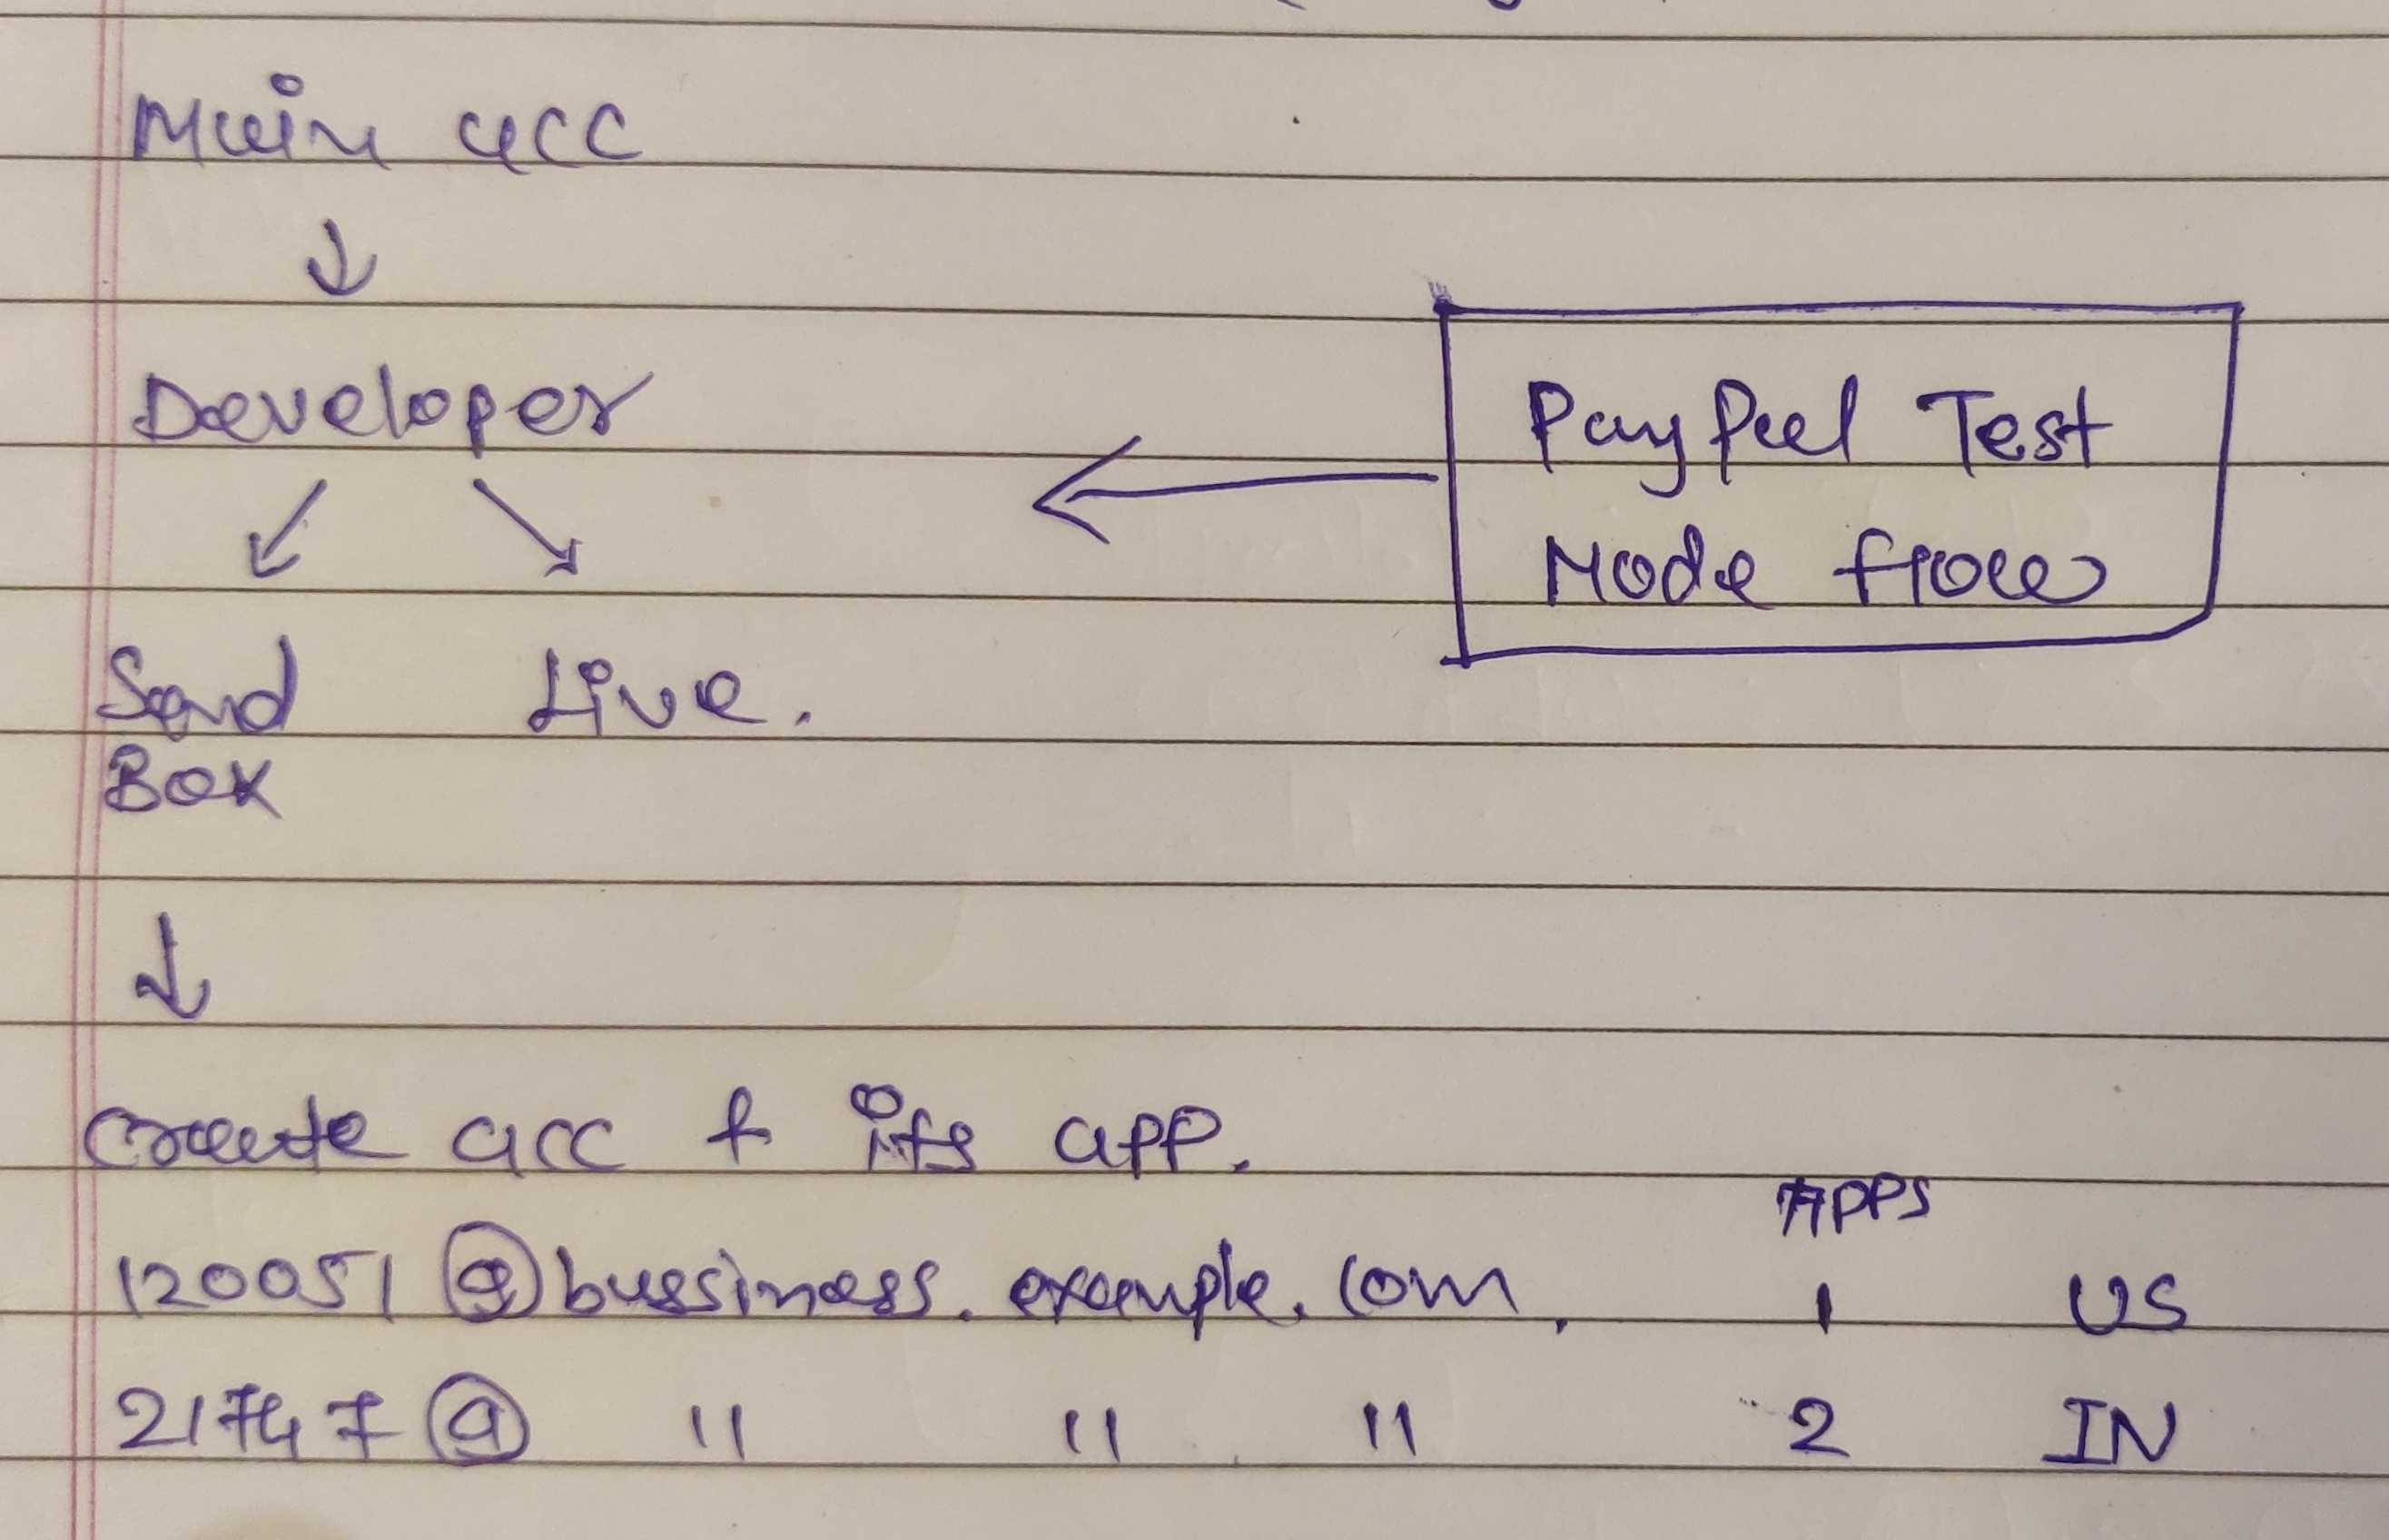 Main acc
↓
Developer
↙ ↘
Sand Live.
Box
←
PayPal Test
Mode flow
↓
Create acc & its app.
APPS
120051 @ bussiness. example. com, 1 US
21747 @ " " " 2 IN